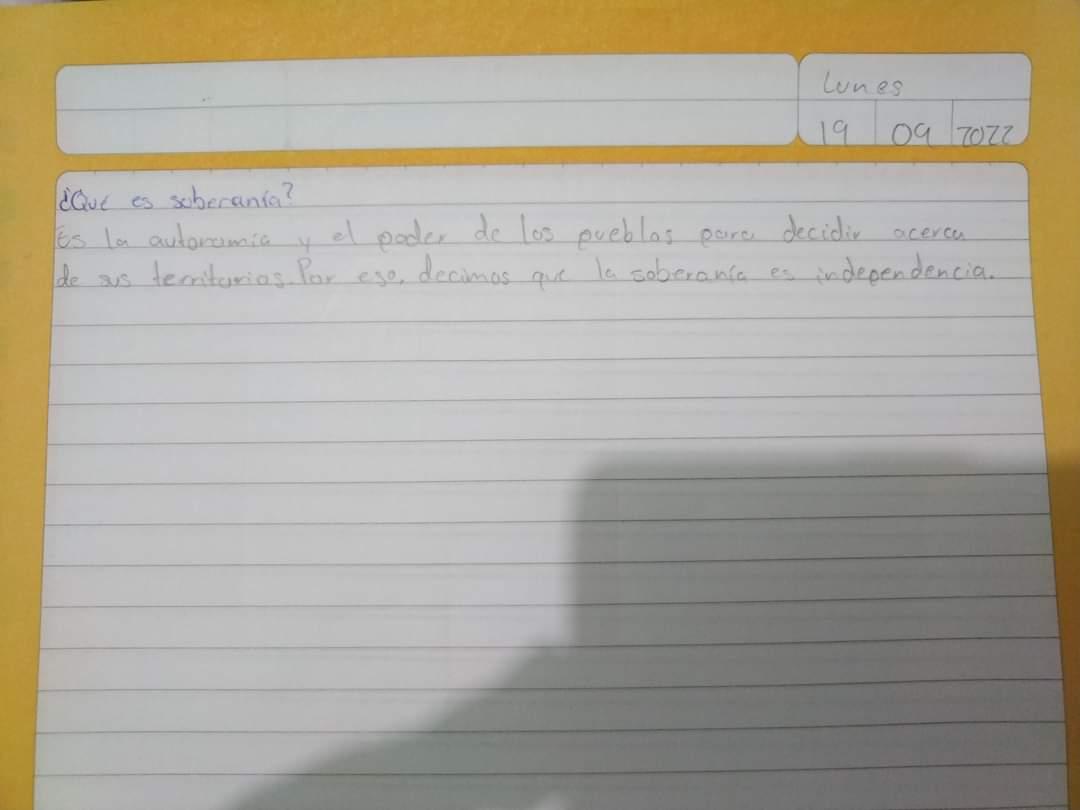 Lunes
19 09 2022
¿Qué es soberanía?
Es la autonomía y el poder de los pueblos para decidir acerca
de sus territorios. Por eso, decimos que la soberanía es independencia.